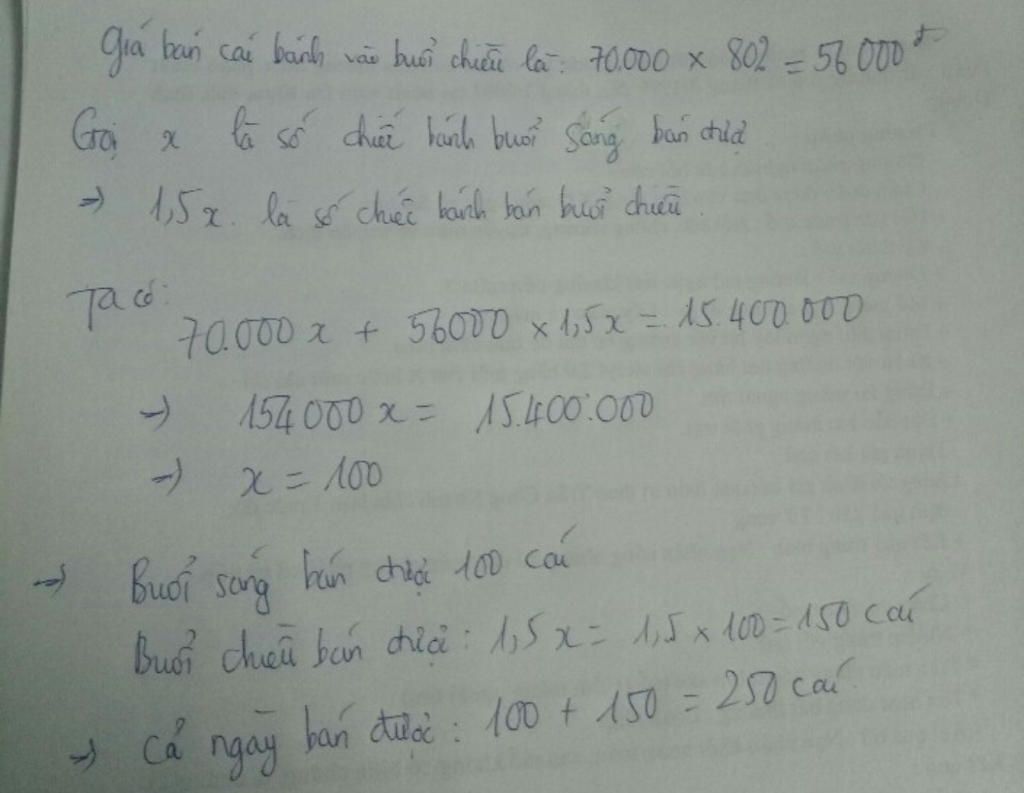 Giá bán cái bánh vào buổi chiều là: 70.000 × 80% = 56000đ
Gọi x là số chiếc bánh buổi sáng bán được
=> 1,5x. là số chiếc bánh bán buổi chiều.
Ta có:
70.000x + 56000 × 1,5x = 15.400.000
→ 154000x = 15.400.000
→ x = 100
=> Buổi sáng bán được 100 cái
Buổi chiều bán được: 1,5x = 1,5 × 100 = 150 cái
=> Cả ngày bán được: 100 + 150 = 250 cái.